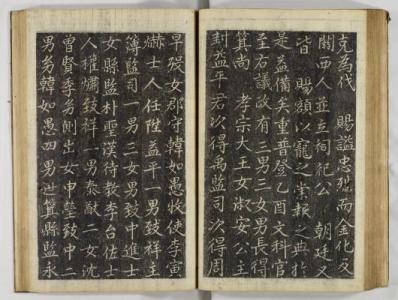 克爲代　賜謚忠烈而金化及
關西人並立祠祀公　朝廷又
皆　賜額以寵之崇報之典於
是益備矣重普登乙酉文科官
至右議政有三男三女男長得
箕尚　孝宗大王女淑安公主
封益平君次得禹監司次得周
早歿女郡守韓如愚牧使李寅
爀士人任陞益平一男致祥主
簿監司一男三女男致中進士
女縣監朴聖漢待教李台佐士
人權熽致祥一男泰猷二女沈
曾賢季幼側出女申瑩致中二
男幼韓如愚四男世箕縣監永